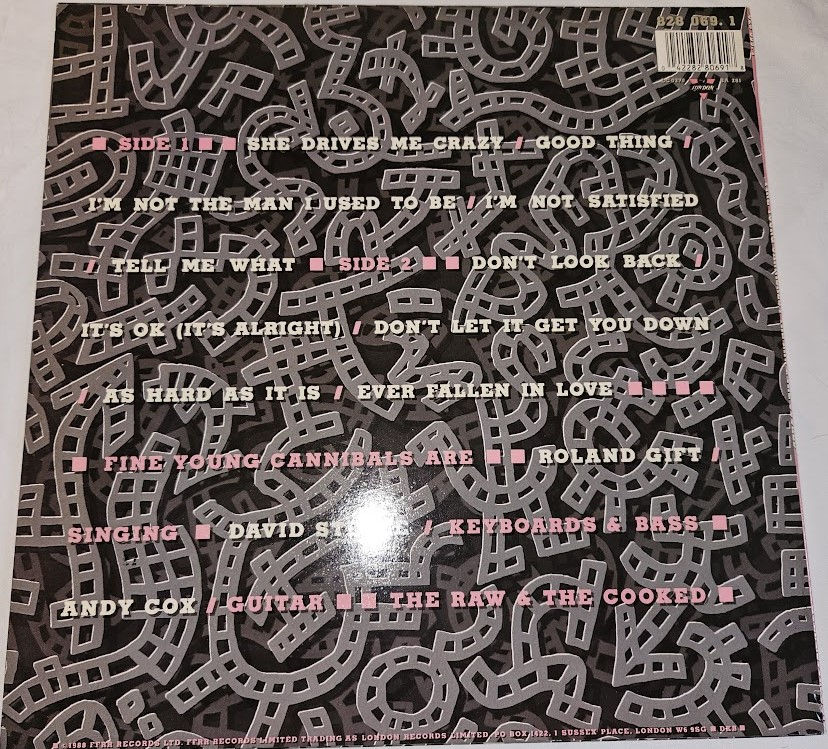 828 069. 1
0 42282 80691
LONDON
■ SIDE 1 ■ ■ SHE DRIVES ME CRAZY / GOOD THING /
I'M NOT THE MAN I USED TO BE / I'M NOT SATISFIED
/ TELL ME WHAT ■ SIDE 2 ■ ■ DON'T LOOK BACK /
IT'S OK (IT'S ALRIGHT) / DON'T LET IT GET YOU DOWN
/ AS HARD AS IT IS / EVER FALLEN IN LOVE ■ ■ ■ ■
■ FINE YOUNG CANNIBALS ARE ■ ■ ROLAND GIFT /
SINGING ■ DAVID / KEYBOARDS & BASS ■
ANDY COX / GUITAR ■ ■ THE RAW & THE COOKED ■
■ ©1988 FFRR RECORDS LTD. FFRR RECORDS LIMITED TRADING AS LONDON RECORDS LIMITED, PO BOX 1422, 1 SUSSEX PLACE, LONDON W6 9SG ■ DKB ■